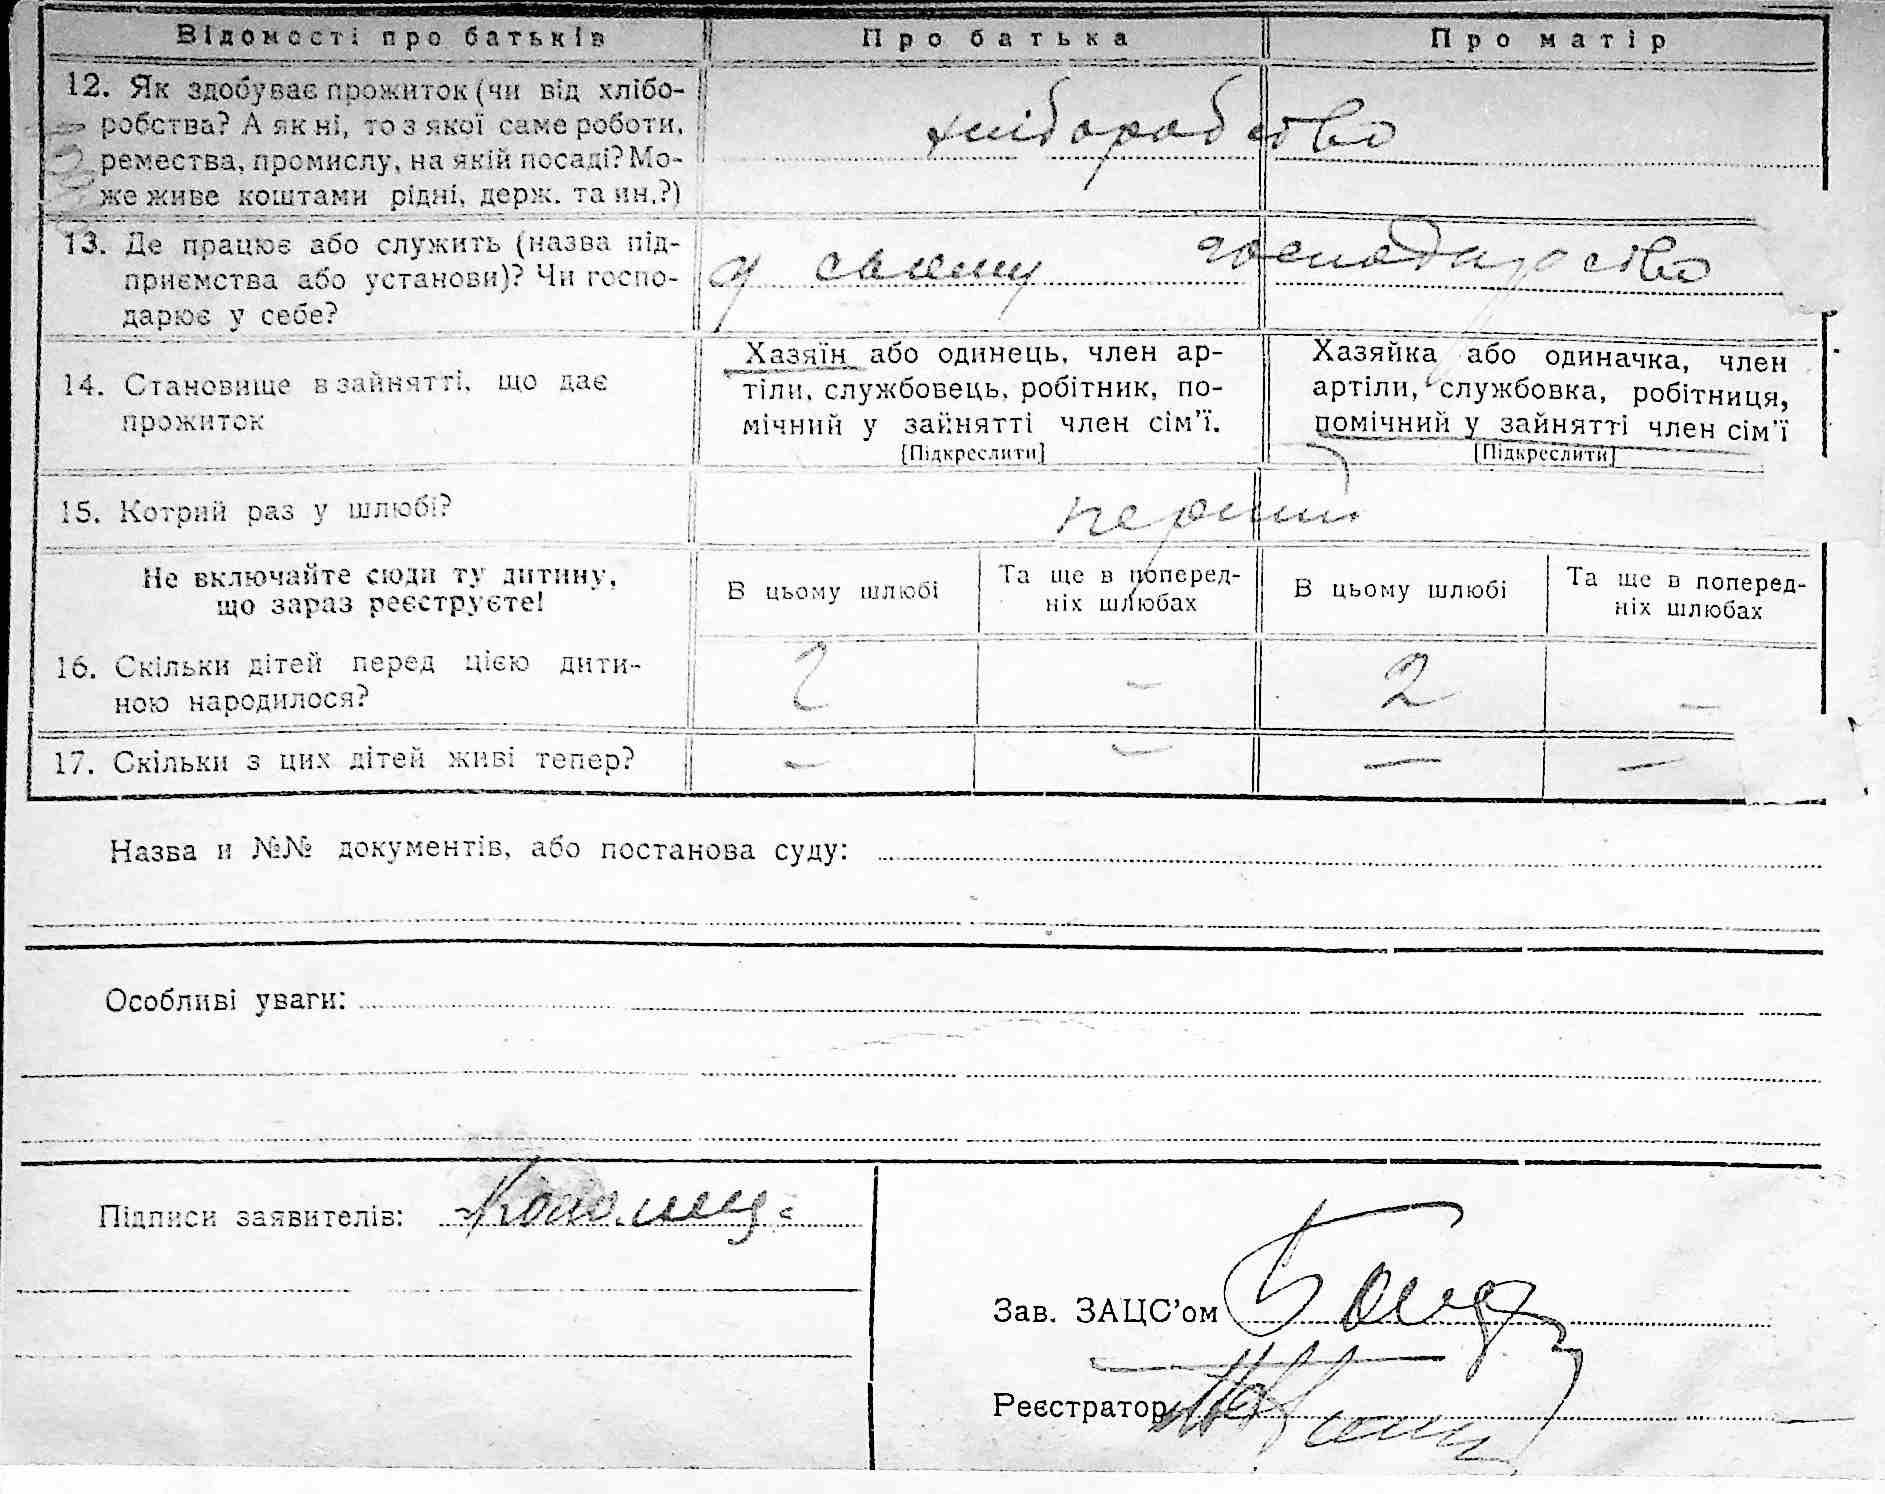 Відомості про батьків Про батька Про матір
12. Як здобуває прожиток (чи від хлібо-
робства? А як ні, то з якої саме роботи,
ремества, промислу, на якій посаді? Мо-
же живе коштами рідні, держ. та ин.?)
хліборобство
13. Де працює або служить (назва під-
приємства або установи)? Чи госпо-
дарює у себе?
у своєму господарство
14. Становище в зайнятті, що дає
прожиток
Хазяїн або одинець, член ар-
тіли, службовець, робітник, по-
мічний у зайнятті член сім'ї.
[Підкреслити]
Хазяйка або одиначка, член
артіли, службовка, робітниця,
помічний у зайнятті член сім'ї
[Підкреслити]
15. Котрий раз у шлюбі?
перший
Не включайте сюди ту дитину,
що зараз реєструєте!
В цьому шлюбі
Та ще в поперед-
ніх шлюбах
В цьому шлюбі
Та ще в поперед-
ніх шлюбах
16. Скільки дітей перед цією дити-
ною народилося?
2 – 2 –
17. Скільки з цих дітей живі тепер?
– – – –
Назва и №№ документів, або постанова суду:
Особливі уваги:
Підписи заявителів:
Зав. ЗАЦС'ом
Реєстратор